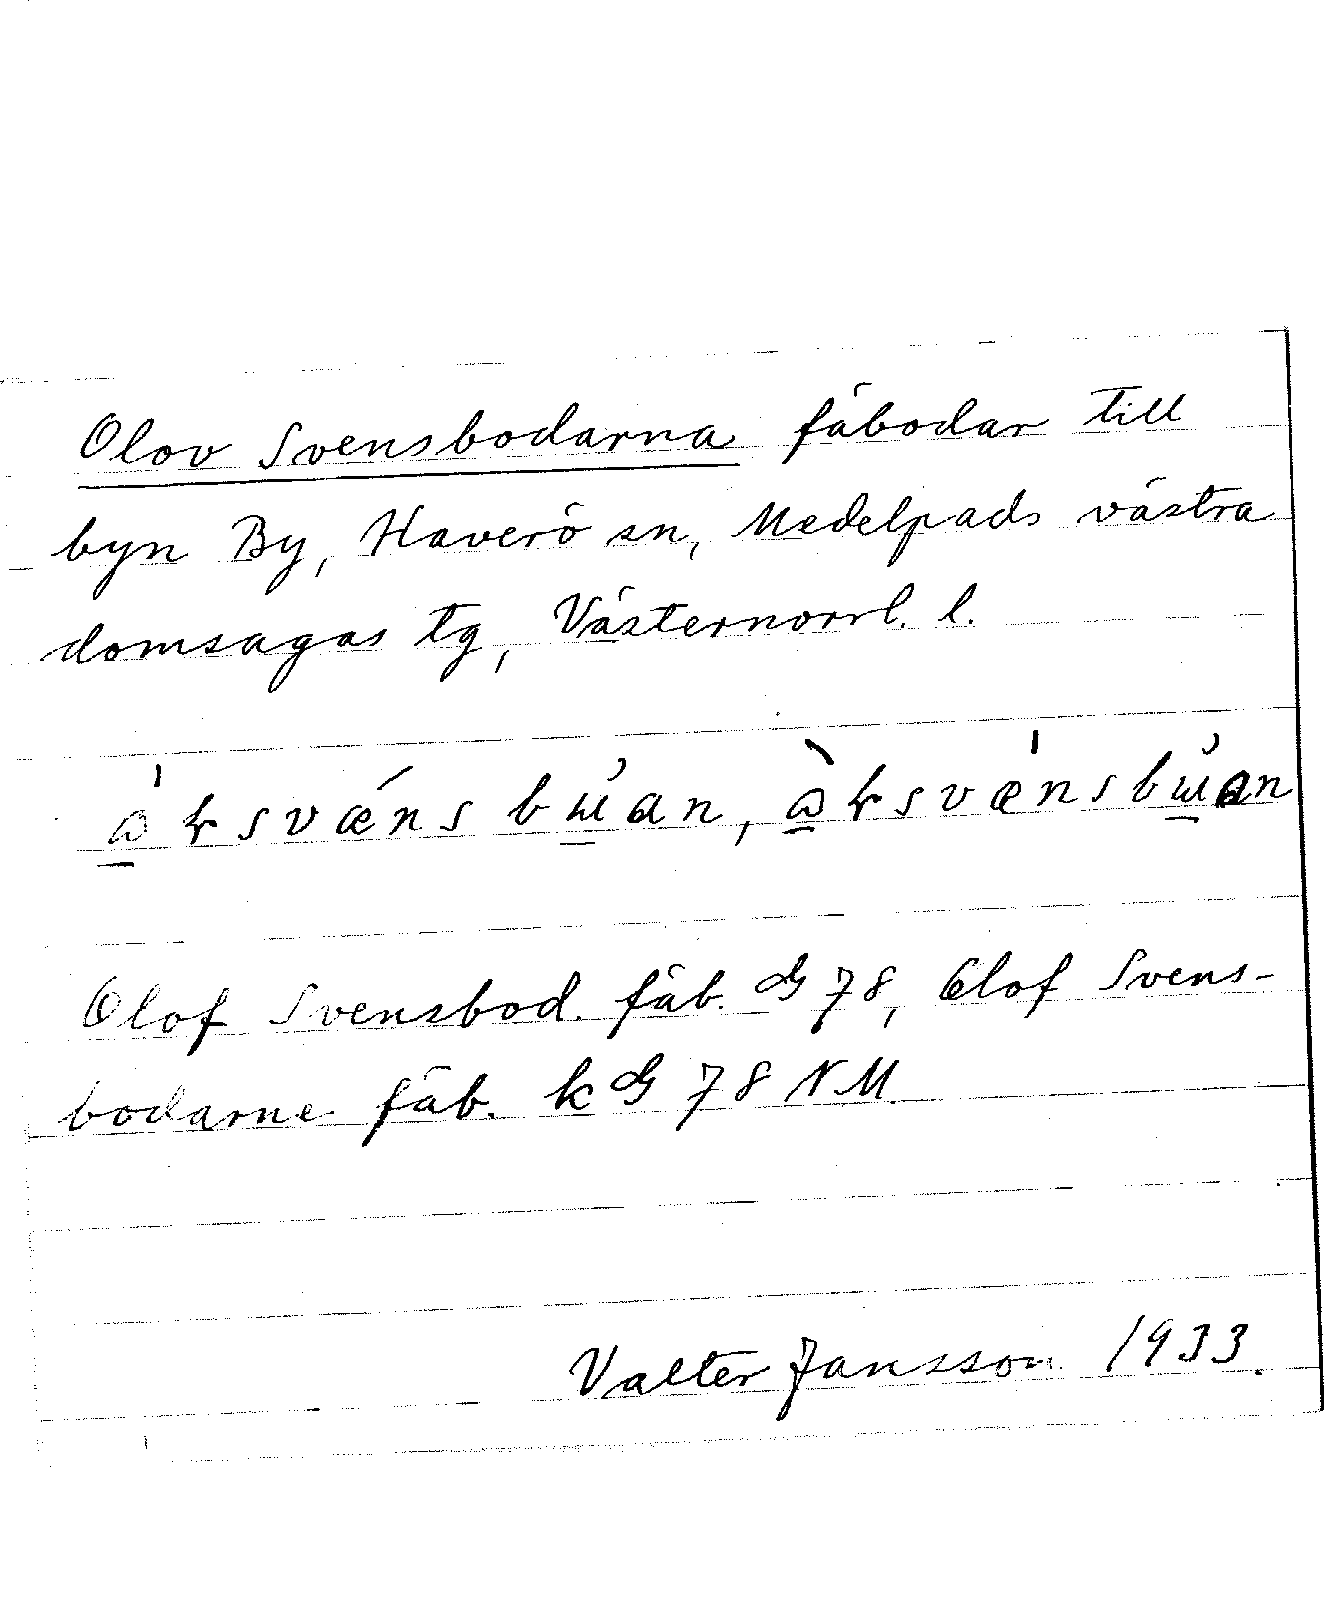 Olov Svensbodarna fäbodar till
byn By, Haverö sn, Medelpads västra
domsagas tg, Västernorrl. l.
Olof Svensbod. fäb. G 78, Olof Svens-
bodarne fäb. k G 78 NM.
Valter Jansson 1933.